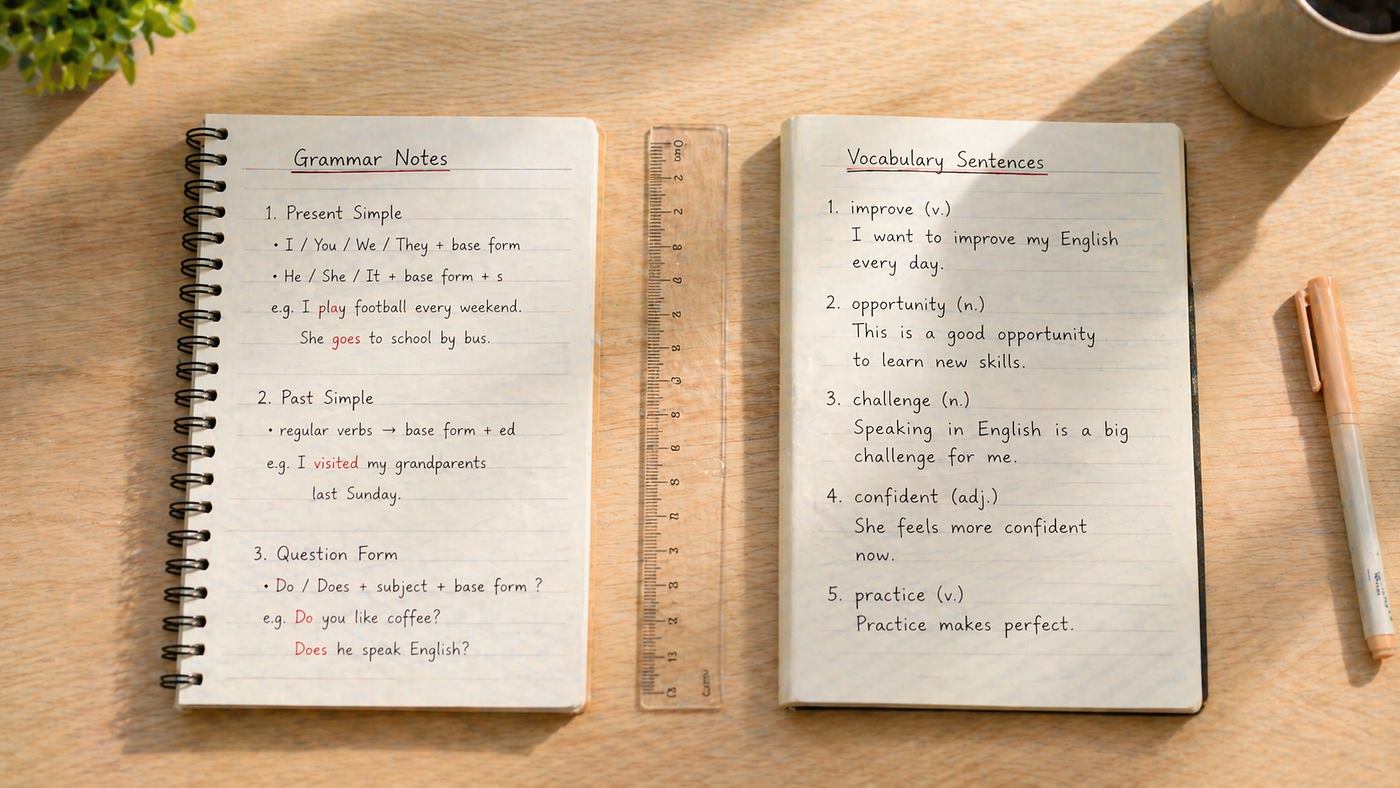 Grammar Notes
1. Present Simple
• I / You / We / They + base form
• He / She / It + base form + s
e.g. I play football every weekend.
She goes to school by bus.
2. Past Simple
• regular verbs → base form + ed
e.g. I visited my grandparents
last Sunday.
3. Question Form
• Do / Does + subject + base form ?
e.g. Do you like coffee?
Does he speak English?
Vocabulary Sentences
1. improve (v.)
I want to improve my English
every day.
2. opportunity (n.)
This is a good opportunity
to learn new skills.
3. challenge (n.)
Speaking in English is a big
challenge for me.
4. confident (adj.)
She feels more confident
now.
5. practice (v.)
Practice makes perfect.